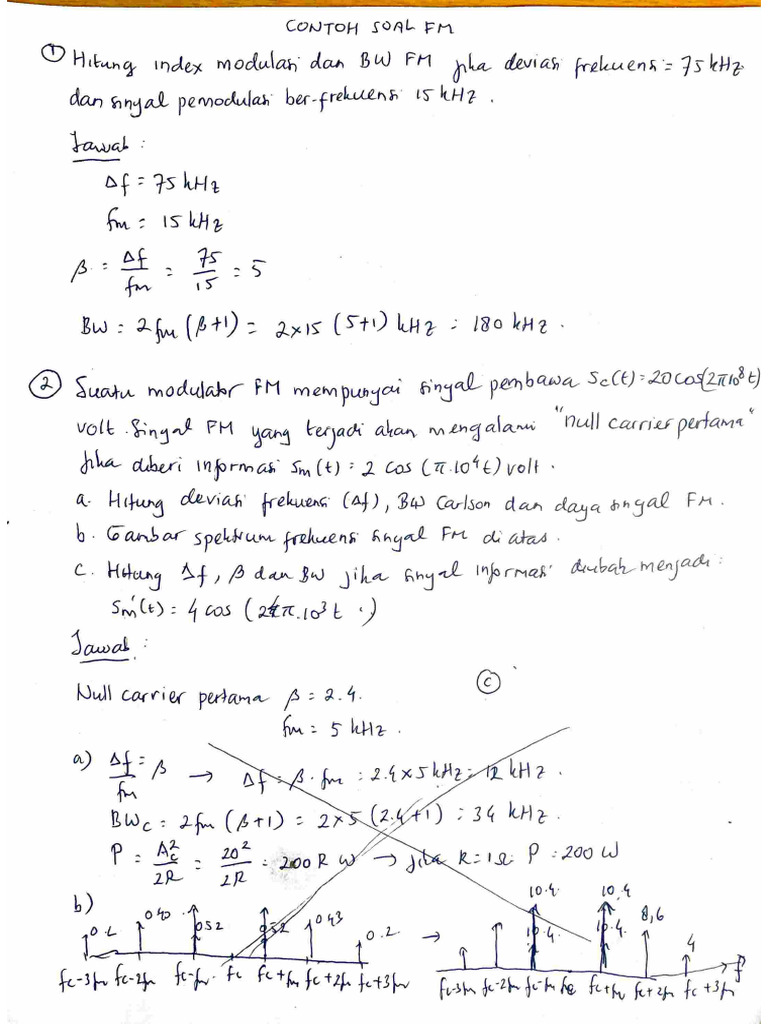 CONTOH SOAL FM
① Hitung index modulasi dan BW FM jika deviasi frekuensi = 75 kHz
dan sinyal pemodulasi ber-frekuensi 15 kHz.
Jawab :
Δf = 75 kHz
fm = 15 kHz
β = Δf/fm = 75/15 = 5
BW = 2 fm (β+1) = 2×15 (5+1) kHz = 180 kHz.
② Suatu modulator FM mempunyai sinyal pembawa Sc(t) = 20 cos(2π10⁸t)
volt. Sinyal FM yang terjadi akan mengalami "null carrier pertama"
jika diberi informasi Sm(t) = 2 cos (π.10⁴t) volt.
a. Hitung deviasi frekuensi (Δf), BW Carlson dan daya sinyal FM.
b. Gambar spektrum frekuensi sinyal FM di atas.
c. Hitung Δf, β dan BW jika sinyal informasi diubah menjadi :
Sm'(t) = 4 cos (2π.10³t )
Jawab :
Null carrier pertama β = 2.4. ⓒ
fm = 5 kHz.
a) Δf/fm = β → Δf = β.fm = 2.4×5 kHz = 12 kHz.
BWc = 2fm (β+1) = 2×5 (2.4+1) = 34 kHz.
P = Ac²/2R = 20²/2R = 200 R W → jika R = 1Ω P = 200 W
b) 0.2 0.40 0.52 0.52 0.43 0.2 → 10.4. 10.4 10.4. 10.4. 8,6 4 f
fc-3fm fc-2fm fc-fm fc fc+fm fc+2fm fc+3fm fc-3fm fc-2fm fc-fm fc fc+fm fc+2fm fc+3fm